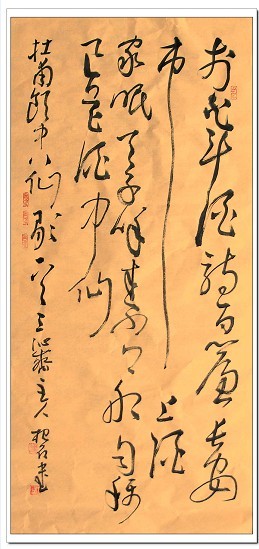 李白斗酒诗百篇长安
市上酒
家眠天子呼来不上船自称
臣是酒中仙
杜甫饮中八仙歌 主人 书